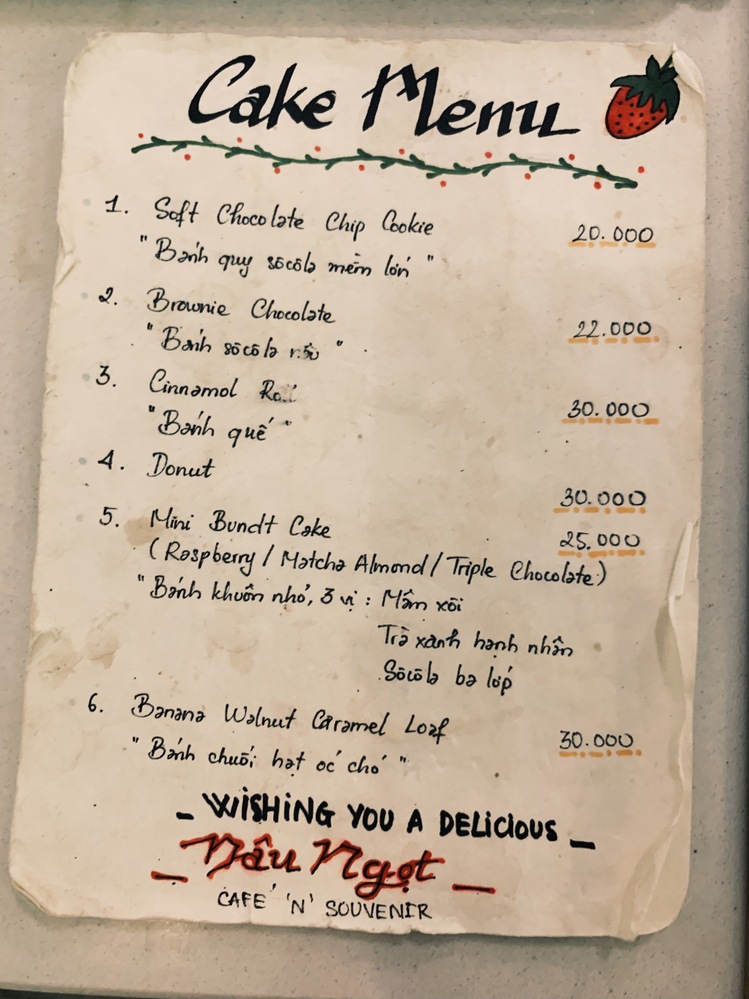 Cake Menu
1. Soft Chocolate Chip Cookie 20.000
"Bánh quy sôcôla mềm lớn"
2. Brownie Chocolate 22.000
"Bánh sôcôla"
3. Cinnamol 30.000
"Bánh quế"
4. Donut 30.000
5. Mini Bundt Cake 25.000
(Raspberry / Matcha Almond / Triple Chocolate)
"Bánh khuôn nhỏ, 3 vị : Mâm xôi
Trà xanh hạnh nhân
Sôcôla ba lớp
6. Banana Walnut Caramel Loaf 30.000
"Bánh chuối hạt óc chó"
- WISHING YOU A DELICIOUS -
- Nâu Ngọt -
CAFE 'N' SOUVENIR